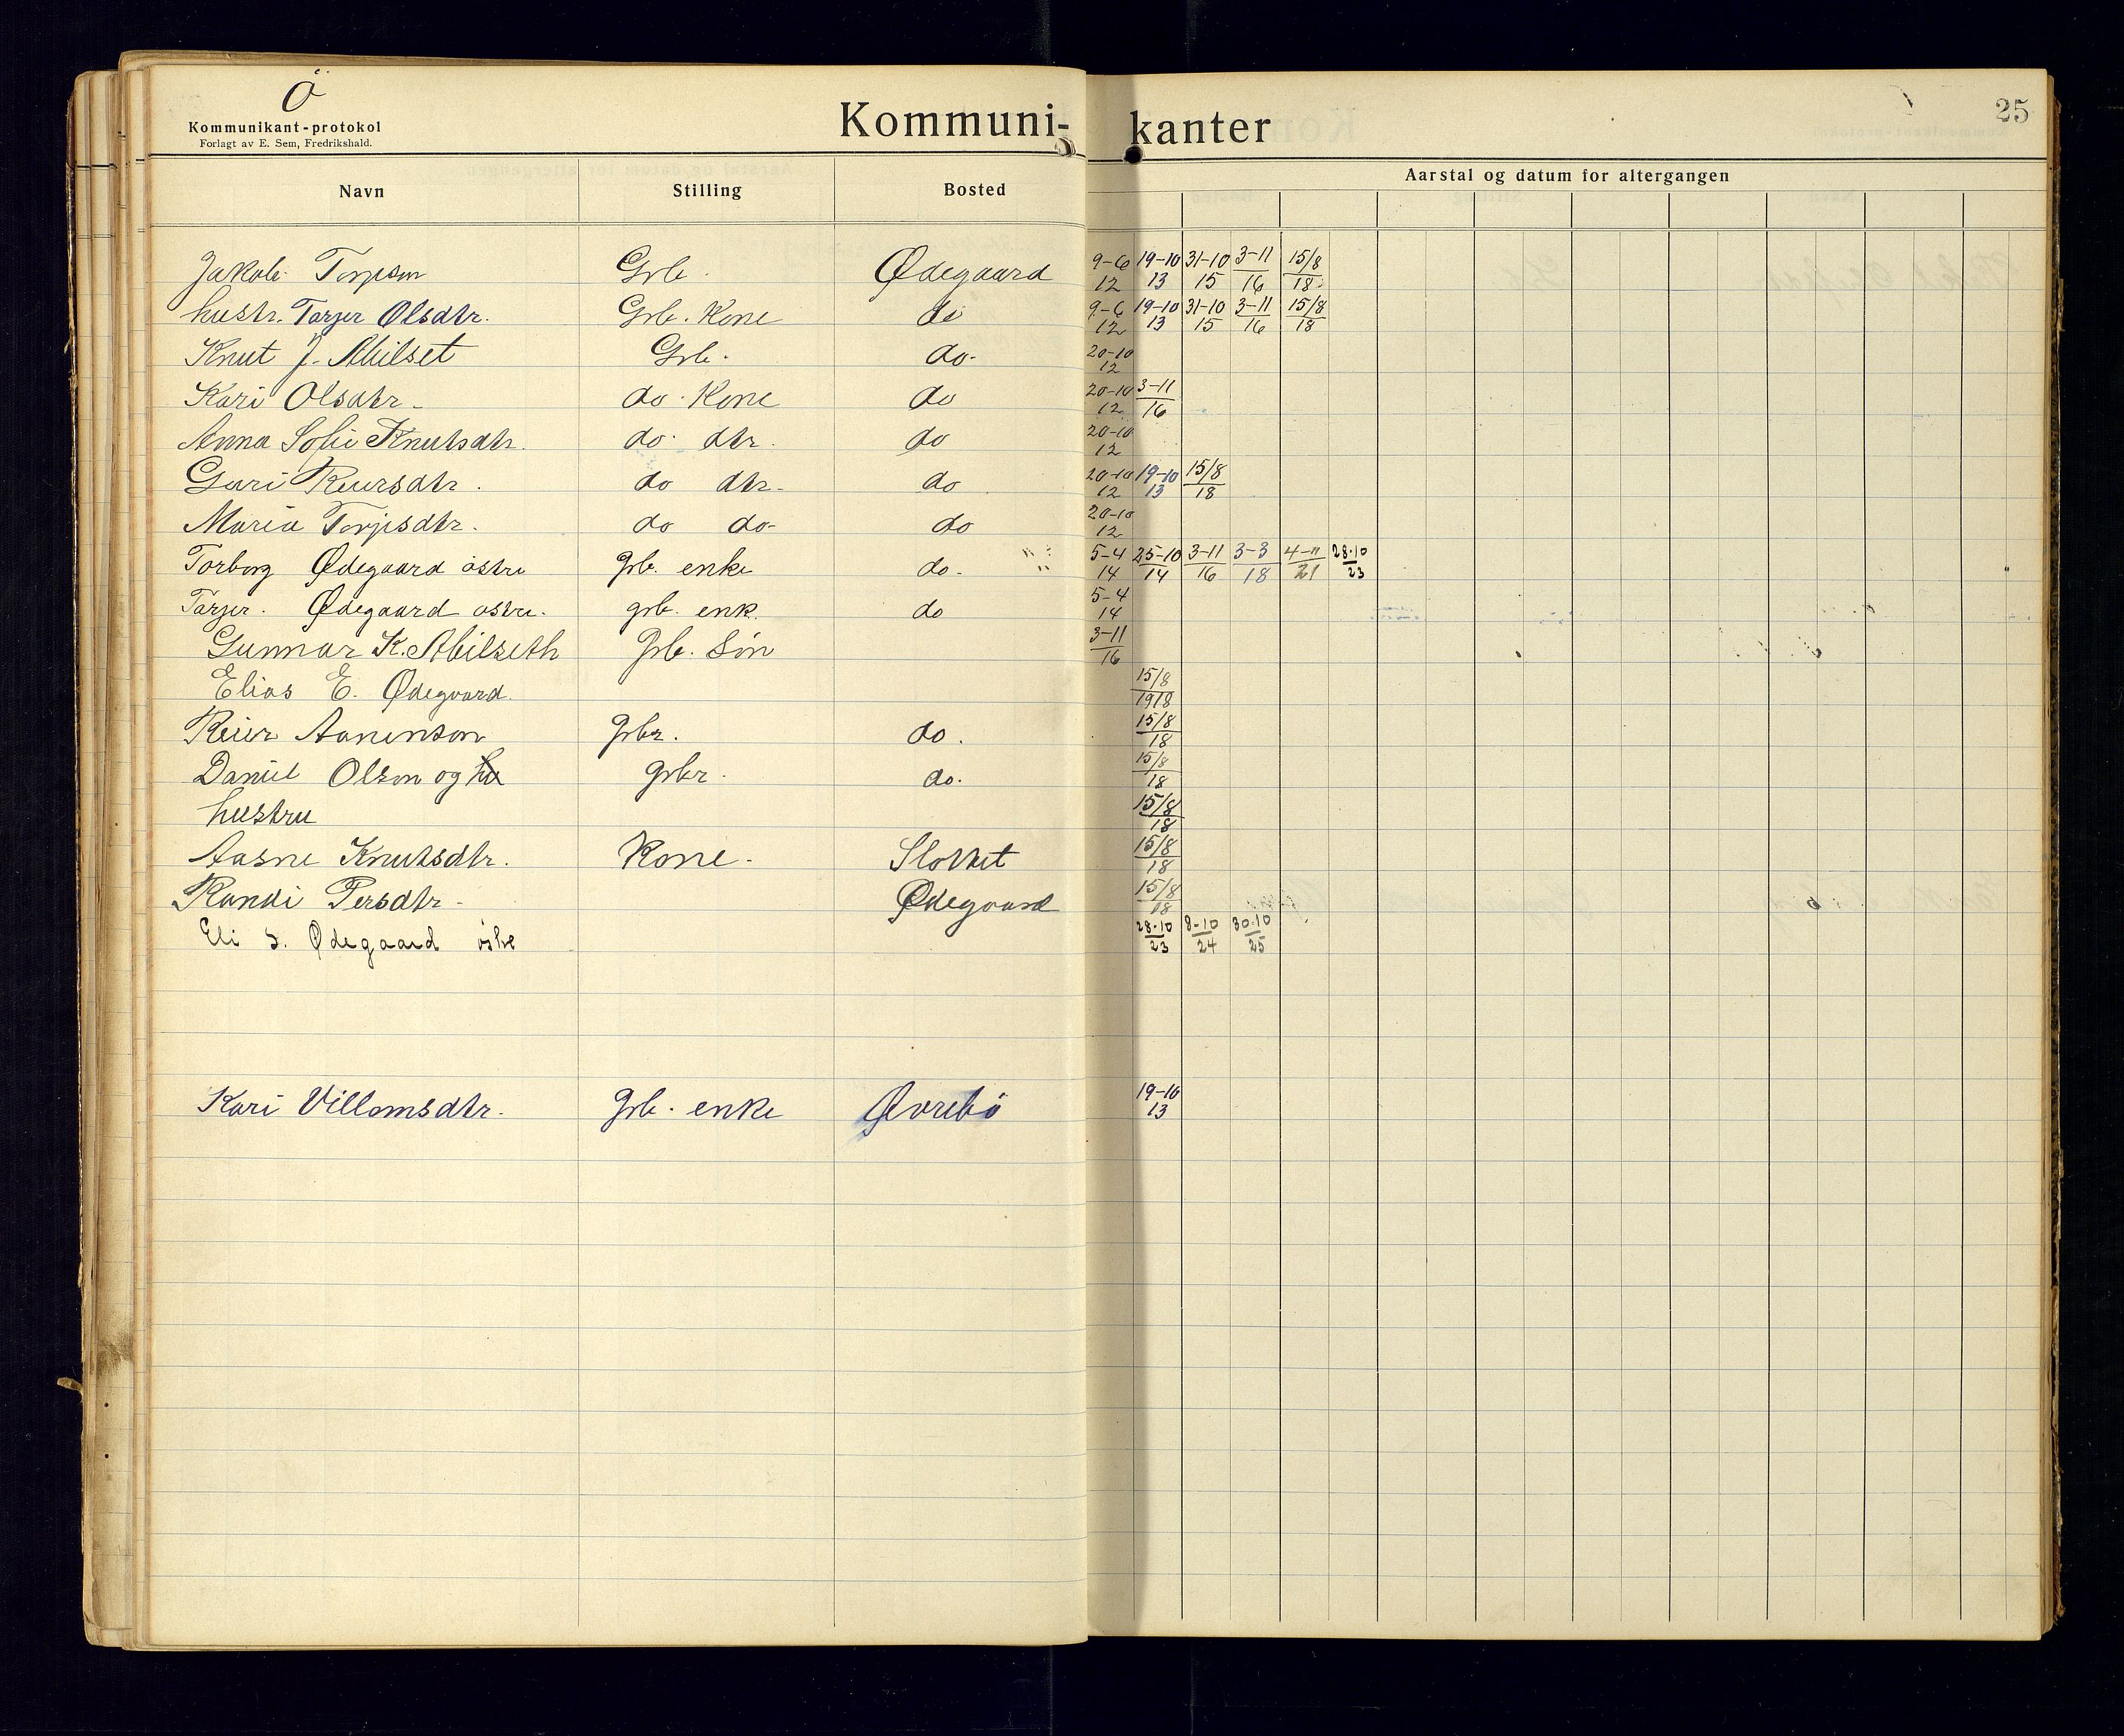 Ö
Kommunikant-protokol
Forlagt av E. Sem, Fredrikshald.
Kommuni-kanter
25
Navn Stilling Bosted Aarstal og datum for altergangen
Jakob Torjeson Grb. Ødegaard 9-6/12 19-10/13 31-10/15 3-11/16 15/8/18
hustr. Tarjer Olsdtr. Grb. Kone do 9-6/12 19-10/13 31-10/15 3-11/16 15/8/18
Knut J. Abilset Grb. do. 20-10/12
Kari Olsdtr. do. Kone do 20-10/12 3-11/16
Anna Sofie Knutsdtr. do. dtr. do 20-10/12
Guri Reiersdtr. do dtr. do 20-10/12 19-10/13 15/8/18
Maria Torjusdtr. do do. do 20-10/12
Torborg Ødegaard östre grb. enke do. 5-4/14 25-10/14 3-11/16 3-3/18 4-11/21 28.10/23
Tarjer. Ødegaard ostre. grb. enk. do 5-4/14
Gunnar K. Abilseth Grb. Sön 3-11/16
Elias E. Ødegaard. 15/8/1918
Reier Aanenson grbr. do. 15/8/18
Daniel Olson og hu grbr. do. 15/8/18
hustru 15/8/18
Aasne Knutsdtr. Kone. Slottet 15/8/18
Randi Persdtr. Ødegaard 15/8/18
Eli S. Ødegaard östre 28.10/23 8-10/24 30.10/25
Kari Villomsdtr. grb. enke Øvrebö 19-10/13